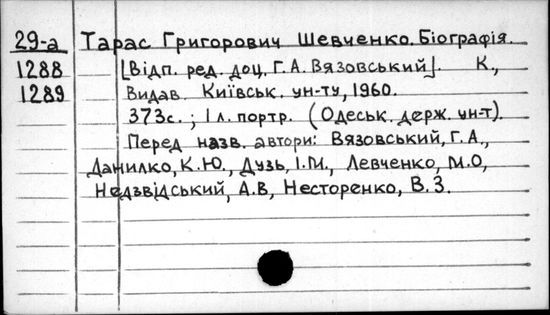 29-а Тарас Григорович Шевченко. Біографія.
1288 [Відп. ред. доц. Г. А. Вязовський]. К.,
1289 Видав. Київськ. ун-ту, 1960.
373с. ; 1 л. портр. (Одеськ. держ. ун-т).
Перед назв. автори: Вязовський, Г. А.,
Данилко, К. Ю., Дузь, І. М., Левченко, М. О,
Недзвідський, А. В, Несторенко, В. З.